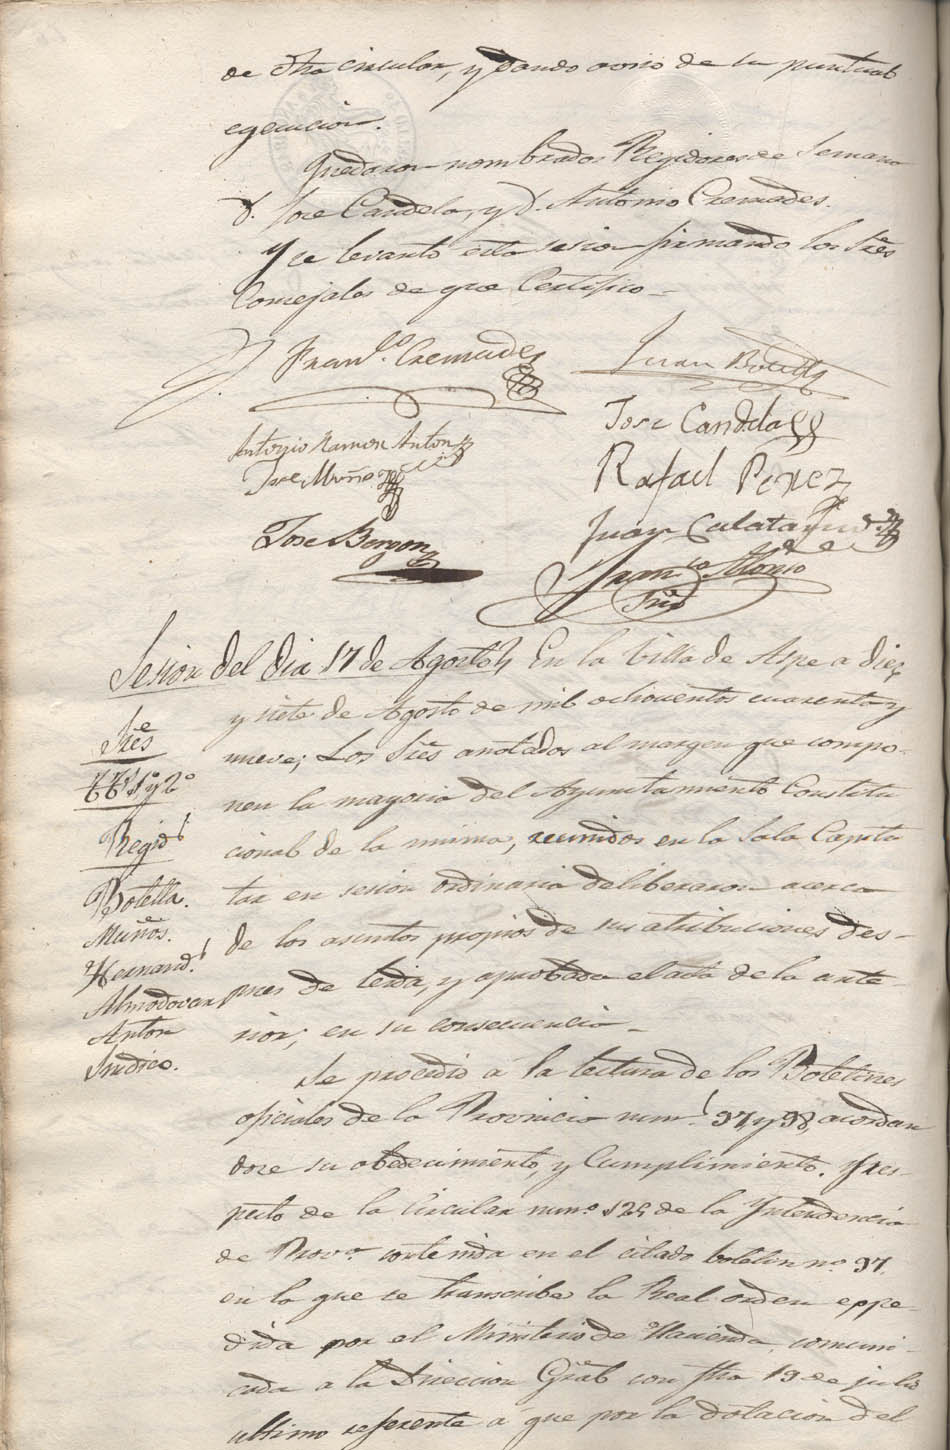 de dha circular, y dando aviso de su puntual
egecucion.
Quedaron nombrados Regidores de Semana
D. Jose Candela, y D. Antonio Cremades.
Y se levantó esta sesion firmando los Sres
Concejales de que Certifico_
Franco. Cremades
Juan Botella
Jose Candela
Antonio Ramon Anton
Jose Muños
Rafael Perez
Juan Calatayud
Jose Berzon
Franco Alonso
Srio
Sesion del dia 17 de Agosto En la Villa de Aspe a diez
y siete de Agosto de mil ochocientos cuarenta y
nueve; Los Sres anotados al margen que compo-
nen la mayoria del Ayuntamiento Constitu
cional de la misma, reunidos en la Sala Capitu
lar en sesion ordinaria deliberaron acerca
de los asuntos propios de sus atribuciones des-
pues de leida, y aprobada el acta de la ante-
rior; en su consecuencia_
Sres
TTes 1º y 2º
Regids
Botella.
Muños.
Hernands
Almodovar
Anton
Sindico.
Se procedió a la lectura de los Boletines
oficiales de la Provincia nums. 97 y 98, acordan
dose su obedecimiento, y Cumplimiento. Y res-
pecto de la Circular numº 125 de la Yntendencia
de Provª contenida en el citado boletin nº 97.
en la que se transcribe la Real orden expe-
dida por el Ministerio de Hacienda, comuni-
cada a la Direccion Gral con fha 19 de julio
ultimo referente a que por la dotacion del